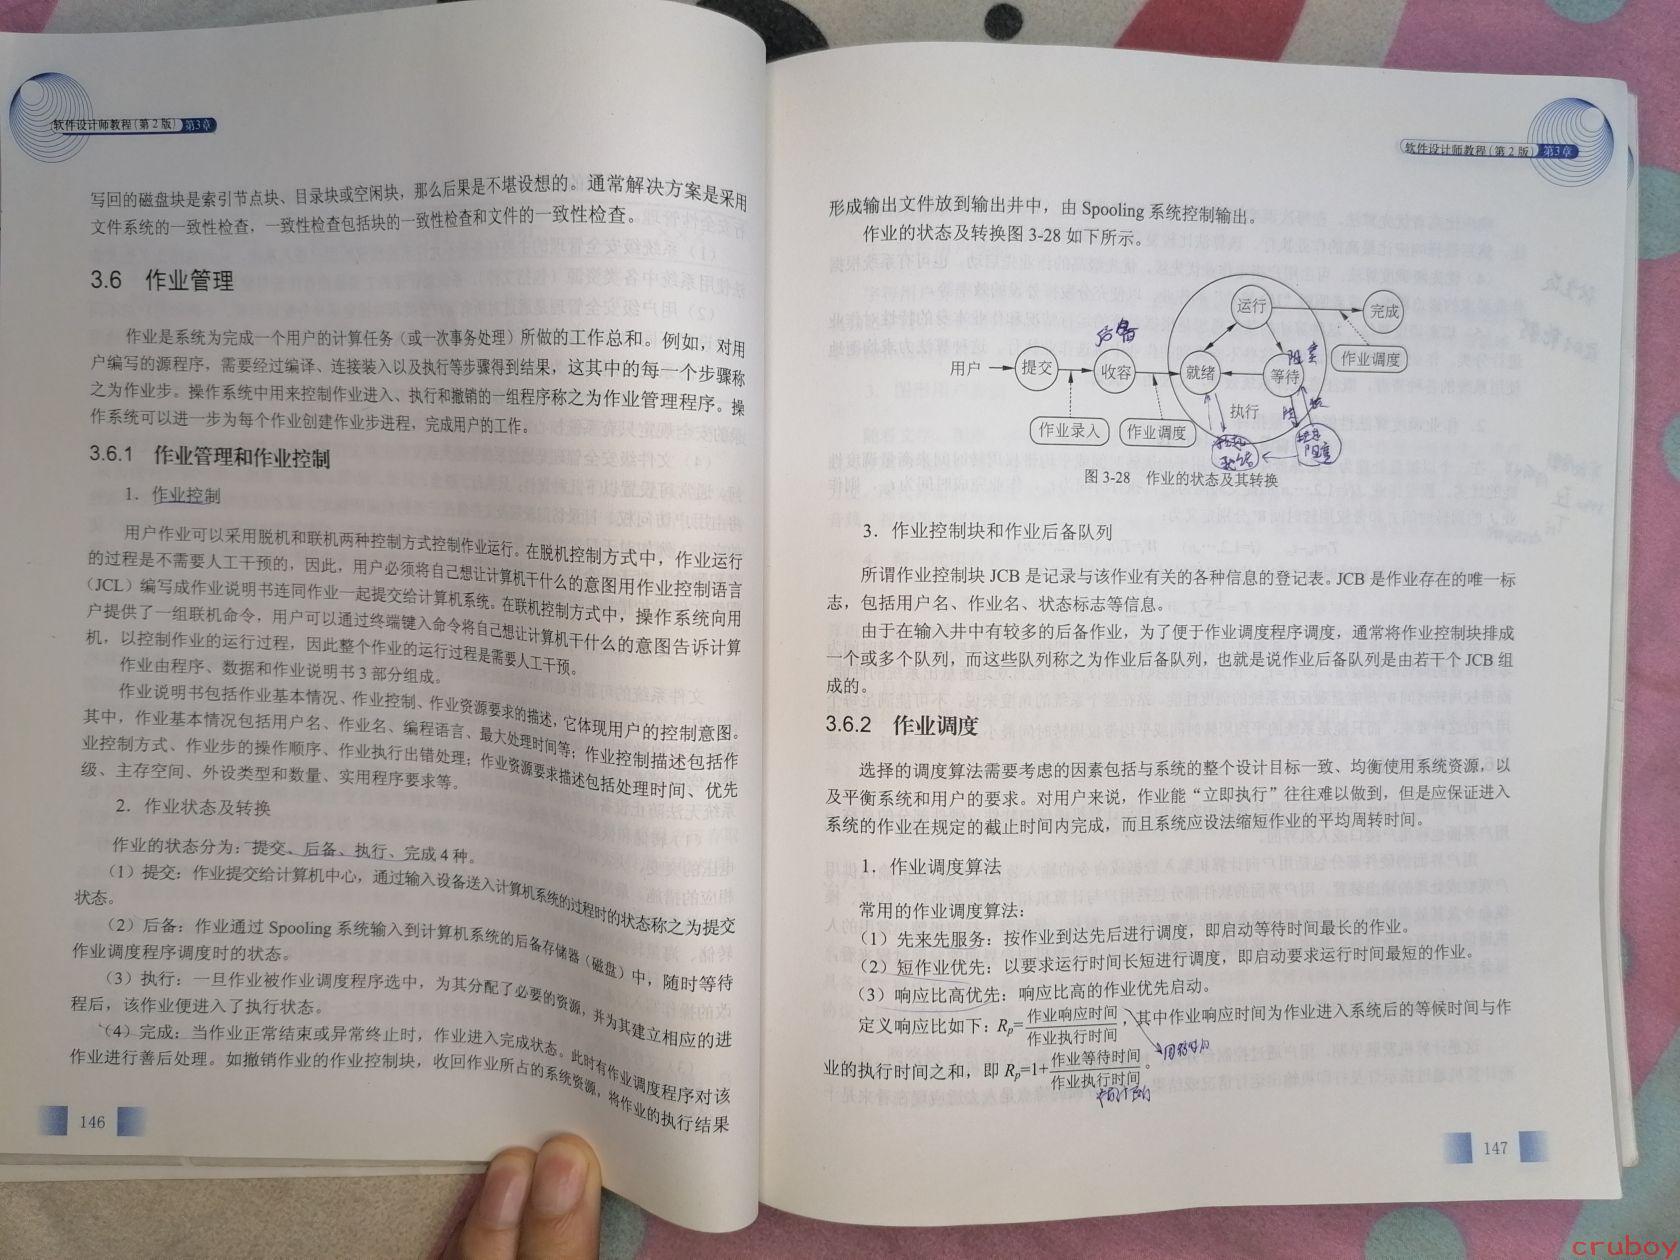 软件设计师教程（第2版） 第3章
写回的磁盘块是索引节点块、目录块或空闲块，那么后果是不堪设想的。通常解决方案是采用
文件系统的一致性检查，一致性检查包括块的一致性检查和文件的一致性检查。
3.6 作业管理
作业是系统为完成一个用户的计算任务（或一次事务处理）所做的工作总和。例如，对用
户编写的源程序，需要经过编译、连接装入以及执行等步骤得到结果，这其中的每一个步骤称
之为作业步。操作系统中用来控制作业进入、执行和撤销的一组程序称之为作业管理程序。操
作系统可以进一步为每个作业创建作业步进程，完成用户的工作。
3.6.1 作业管理和作业控制
1．作业控制
用户作业可以采用脱机和联机两种控制方式控制作业运行。在脱机控制方式中，作业运行
的过程是不需要人工干预的，因此，用户必须将自己想让计算机干什么的意图用作业控制语言
（JCL）编写成作业说明书连同作业一起提交给计算机系统。在联机控制方式中，操作系统向用
户提供了一组联机命令，用户可以通过终端键入命令将自己想让计算机干什么的意图告诉计算
机，以控制作业的运行过程，因此整个作业的运行过程是需要人工干预。
作业由程序、数据和作业说明书3部分组成。
作业说明书包括作业基本情况、作业控制、作业资源要求的描述，它体现用户的控制意图。
其中，作业基本情况包括用户名、作业名、编程语言、最大处理时间等；作业控制描述包括作
业控制方式、作业步的操作顺序、作业执行出错处理；作业资源要求描述包括处理时间、优先
级、主存空间、外设类型和数量、实用程序要求等。
2．作业状态及转换
作业的状态分为：提交、后备、执行、完成4种。
（1）提交：作业提交给计算机中心，通过输入设备送入计算机系统的过程时的状态称之为提交
状态。
（2）后备：作业通过 Spooling 系统输入到计算机系统的后备存储器（磁盘）中，随时等待
作业调度程序调度时的状态。
（3）执行：一旦作业被作业调度程序选中，为其分配了必要的资源，并为其建立相应的进
程后，该作业便进入了执行状态。
（4）完成：当作业正常结束或异常终止时，作业进入完成状态。此时有作业调度程序对该
作业进行善后处理。如撤销作业的作业控制块，收回作业所占的系统资源，将作业的执行结果
146
软件设计师教程（第2版） 第3章
形成输出文件放到输出井中，由 Spooling 系统控制输出。
作业的状态及转换图 3-28 如下所示。
运行
完成
后备
阻塞
作业调度
用户
提交
收容
就绪
等待
执行
作业录入
作业调度
就绪
阻塞
图 3-28 作业的状态及其转换
3．作业控制块和作业后备队列
所谓作业控制块 JCB 是记录与该作业有关的各种信息的登记表。JCB 是作业存在的唯一标
志，包括用户名、作业名、状态标志等信息。
由于在输入井中有较多的后备作业，为了便于作业调度程序调度，通常将作业控制块排成
一个或多个队列，而这些队列称之为作业后备队列，也就是说作业后备队列是由若干个 JCB 组
成的。
3.6.2 作业调度
选择的调度算法需要考虑的因素包括与系统的整个设计目标一致、均衡使用系统资源，以
及平衡系统和用户的要求。对用户来说，作业能“立即执行”往往难以做到，但是应保证进入
系统的作业在规定的截止时间内完成，而且系统应设法缩短作业的平均周转时间。
1．作业调度算法
常用的作业调度算法：
（1）先来先服务：按作业到达先后进行调度，即启动等待时间最长的作业。
（2）短作业优先：以要求运行时间长短进行调度，即启动要求运行时间最短的作业。
（3）响应比高优先：响应比高的作业优先启动。
定义响应比如下：Rp=作业响应时间/作业执行时间，其中作业响应时间为作业进入系统后的等候时间与作
业的执行时间之和，即 Rp=1+作业等待时间/作业执行时间。
147
cruboy